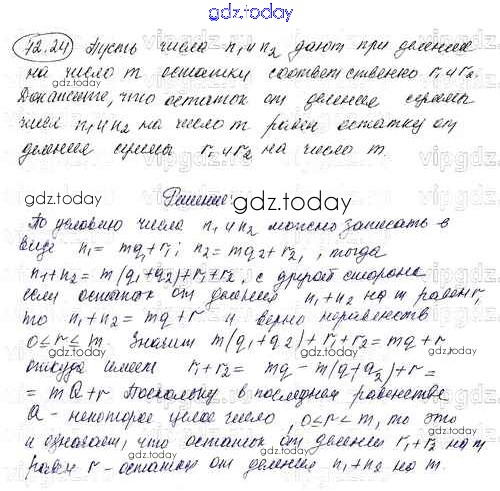 gdz.today
12.24 Пусть числа n₁ и n₂ дают при делении
на число m остатки соответственно r₁ и r₂.
Докажите, что остаток от деления суммы
чисел n₁ и n₂ на число m равен остатку от
деления суммы r₁ и r₂ на число m.
Решение:
По условию числа n₁ и n₂ можно записать в
виде n₁ = mq₁ + r₁; n₂ = mq₂ + r₂, , тогда
n₁+n₂ = m(q₁+q₂)+r₁+r₂, с другой стороны
если остаток от деления n₁+n₂ на m равен r,
то n₁+n₂ = mq+r и верно неравенств
0≤r≤m. Значит m(q₁+q₂)+r₁+r₂ = mq+r
откуда имеем r₁+r₂ = mq - m(q+q₂)+r =
= mQ+r Поскольку в последнем равенстве
Q - некоторое целое число, 0≤r<m, то это
и означает, что остаток от деления r₁+r₂ на m
равен r - остатки от деления n₁+n₂ на m.
gdz.today